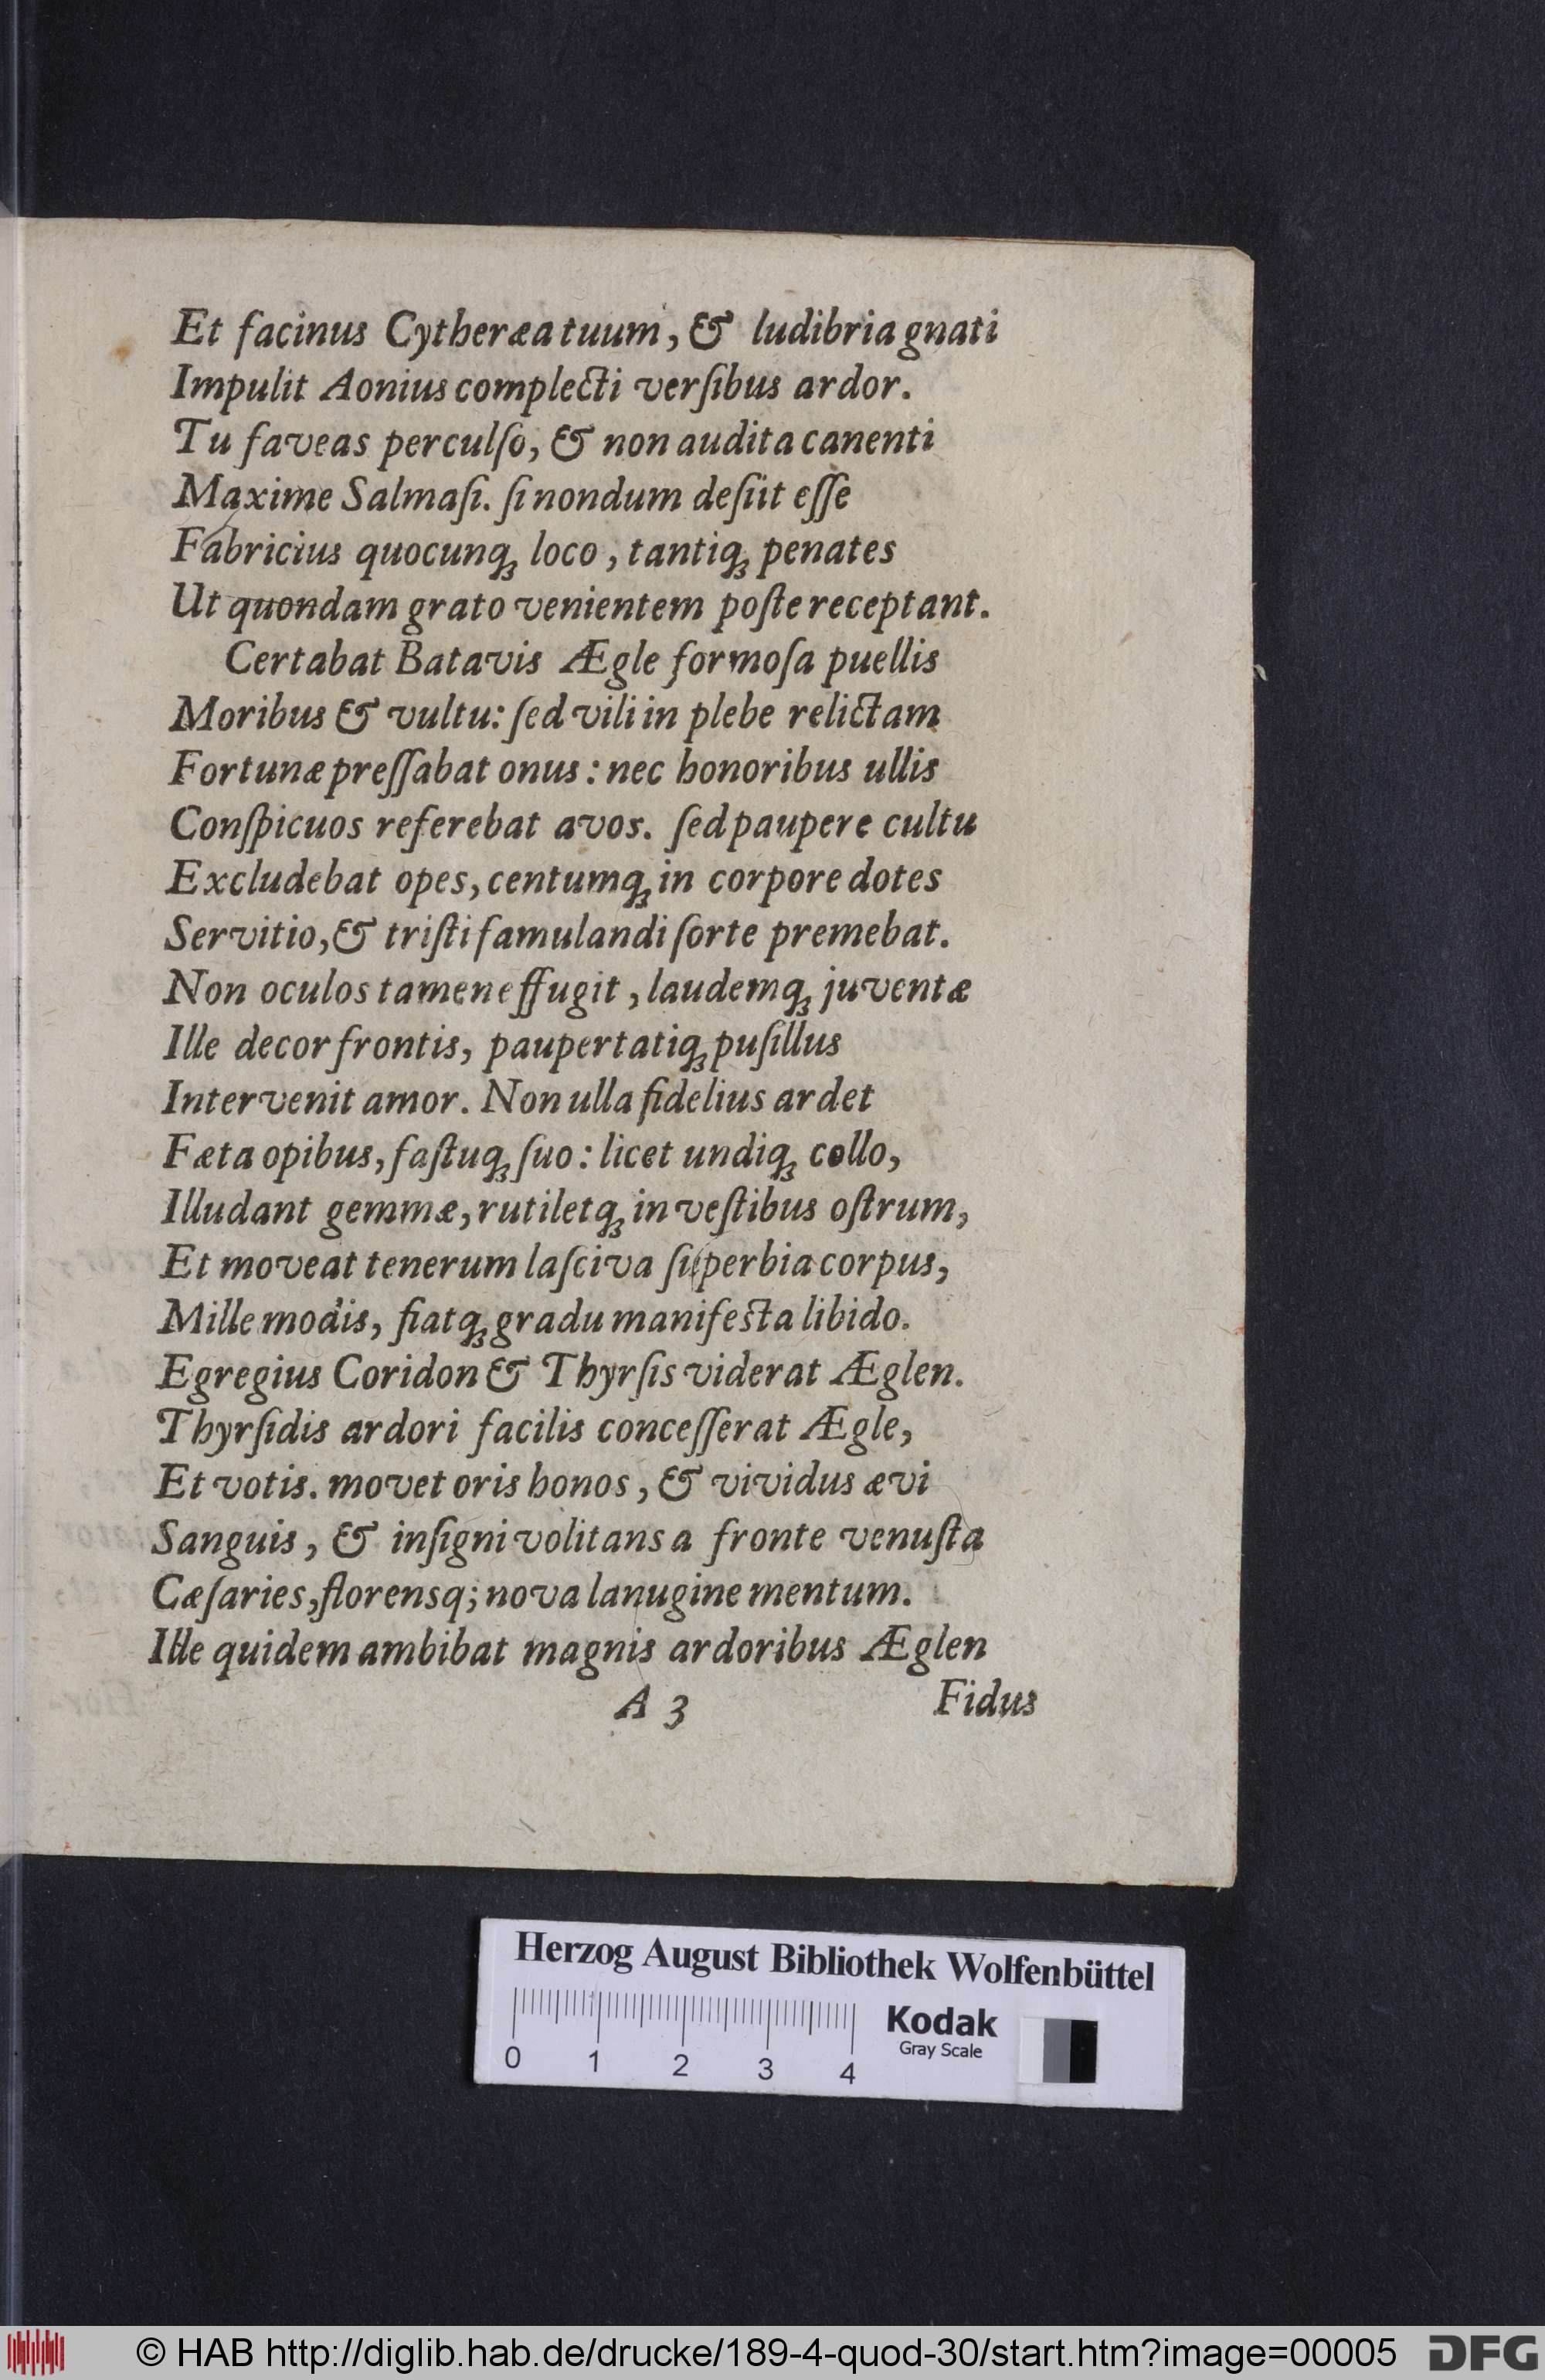 Et facinus Cytheræa tuum, & ludibria gnati
Impulit Aonius complecti verſibus ardor.
Tu faveas perculſo, & non audita canenti
Maxime Salmaſi. ſi nondum deſiit eſſe
Fabricius quocunqꝫ loco, tantiqꝫ penates
Ut quondam grato venientem poſte receptant.
Certabat Batavis Ægle formoſa puellis
Moribus & vultu: ſed vili in plebe relictam
Fortunæ preſſabat onus: nec honoribus ullis
Conſpicuos referebat avos. ſed paupere cultu
Excludebat opes, centumqꝫ in corpore dotes
Servitio, & triſti famulandi ſorte premebat.
Non oculos tamen effugit, laudemqꝫ juventæ
Ille decor frontis, paupertatiqꝫ puſillus
Intervenit amor. Non ulla fidelius ardet
Fæta opibus, faſtuqꝫ ſuo: licet undiqꝫ collo,
Illudant gemmæ, rutiletqꝫ in veſtibus oſtrum,
Et moveat tenerum laſciva ſuperbia corpus,
Mille modis, fiatqꝫ gradu manifeſta libido.
Egregius Coridon & Thyrſis viderat Æglen.
Thyrſidis ardori facilis conceſſerat Ægle,
Et votis. movet oris honos, & vividus ævi
Sanguis, & inſigni volitans a fronte venuſta
Cæſaries, florensq; nova lanugine mentum.
Ille quidem ambibat magnis ardoribus Æglen
A 3 Fidus
Herzog August Bibliothek Wolfenbüttel
Kodak
Gray Scale
0 1 2 3 4
© HAB http://diglib.hab.de/drucke/189-4-quod-30/start.htm?image=00005
DFG